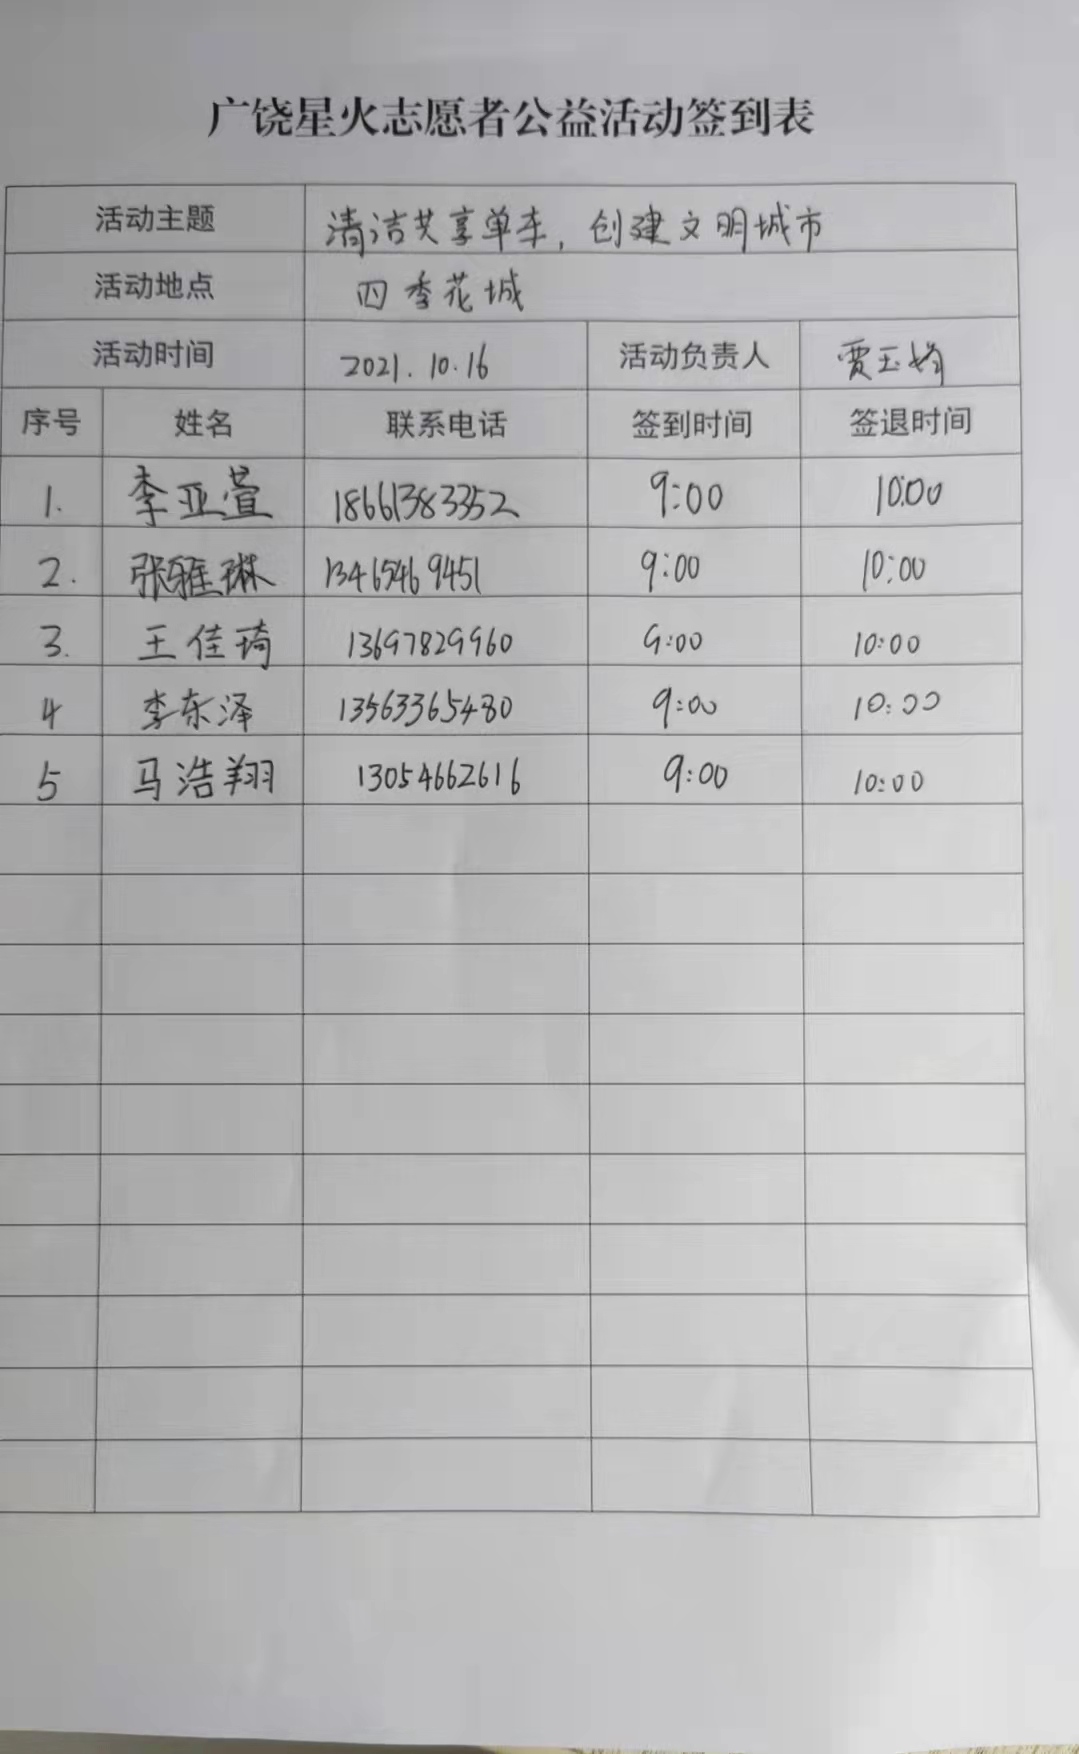 广饶星火志愿者公益活动签到表
活动主题 清洁共享单车，创建文明城市
活动地点 四季花城
活动时间 2021.10.16 活动负责人 贾玉
序号 姓名 联系电话 签到时间 签退时间
1. 李亚萱 18661383352 9:00 10:00
2. 张雅琳 13465469451 9:00 10:00
3. 王佳琦 13697829960 9:00 10:00
4 李东泽 13563365480 9:00 10:00
5 马浩翔 13054662616 9:00 10:00